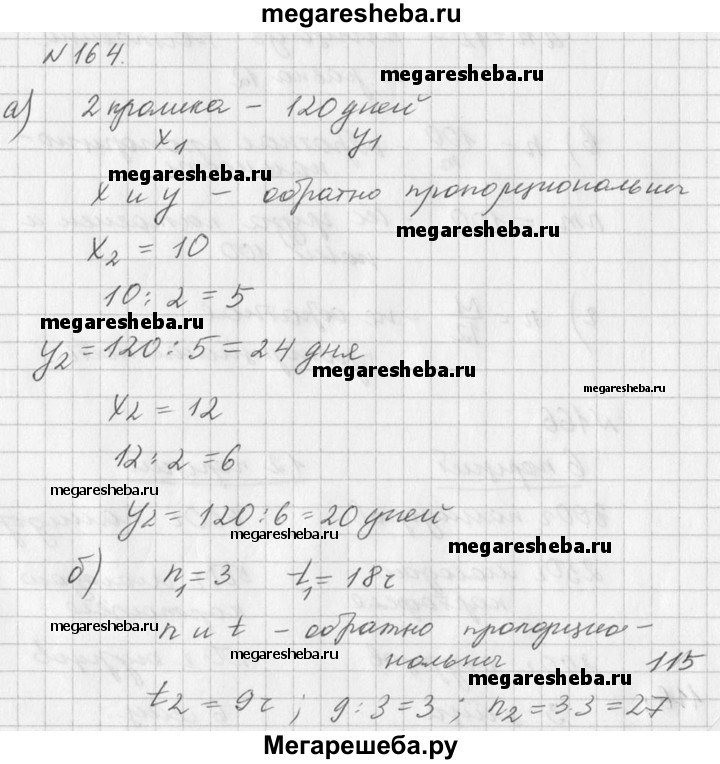 megaresheba.ru
N 164.
megaresheba.ru
а) 2 кролика - 120 дней
x₁ y₁
megaresheba.ru
x и y - обратно пропорциональны
megaresheba.ru
x₂ = 10
10 : 2 = 5
megaresheba.ru
y₂ = 120 : 5 = 24 дня
megaresheba.ru
megaresheba.ru
x₂ = 12
12 : 2 = 6
megaresheba.ru
y₂ = 120 : 6 = 20 дней
megaresheba.ru
megaresheba.ru
б) n₁ = 3 t₁ = 18 г
megaresheba.ru
n и t - обратно пропорцио-
нальны 115
megaresheba.ru
megaresheba.ru
t₂ = 9 г ; 9 : 3 = 3 ; n₂ = 3·3 = 27
Мегарешеба.ру